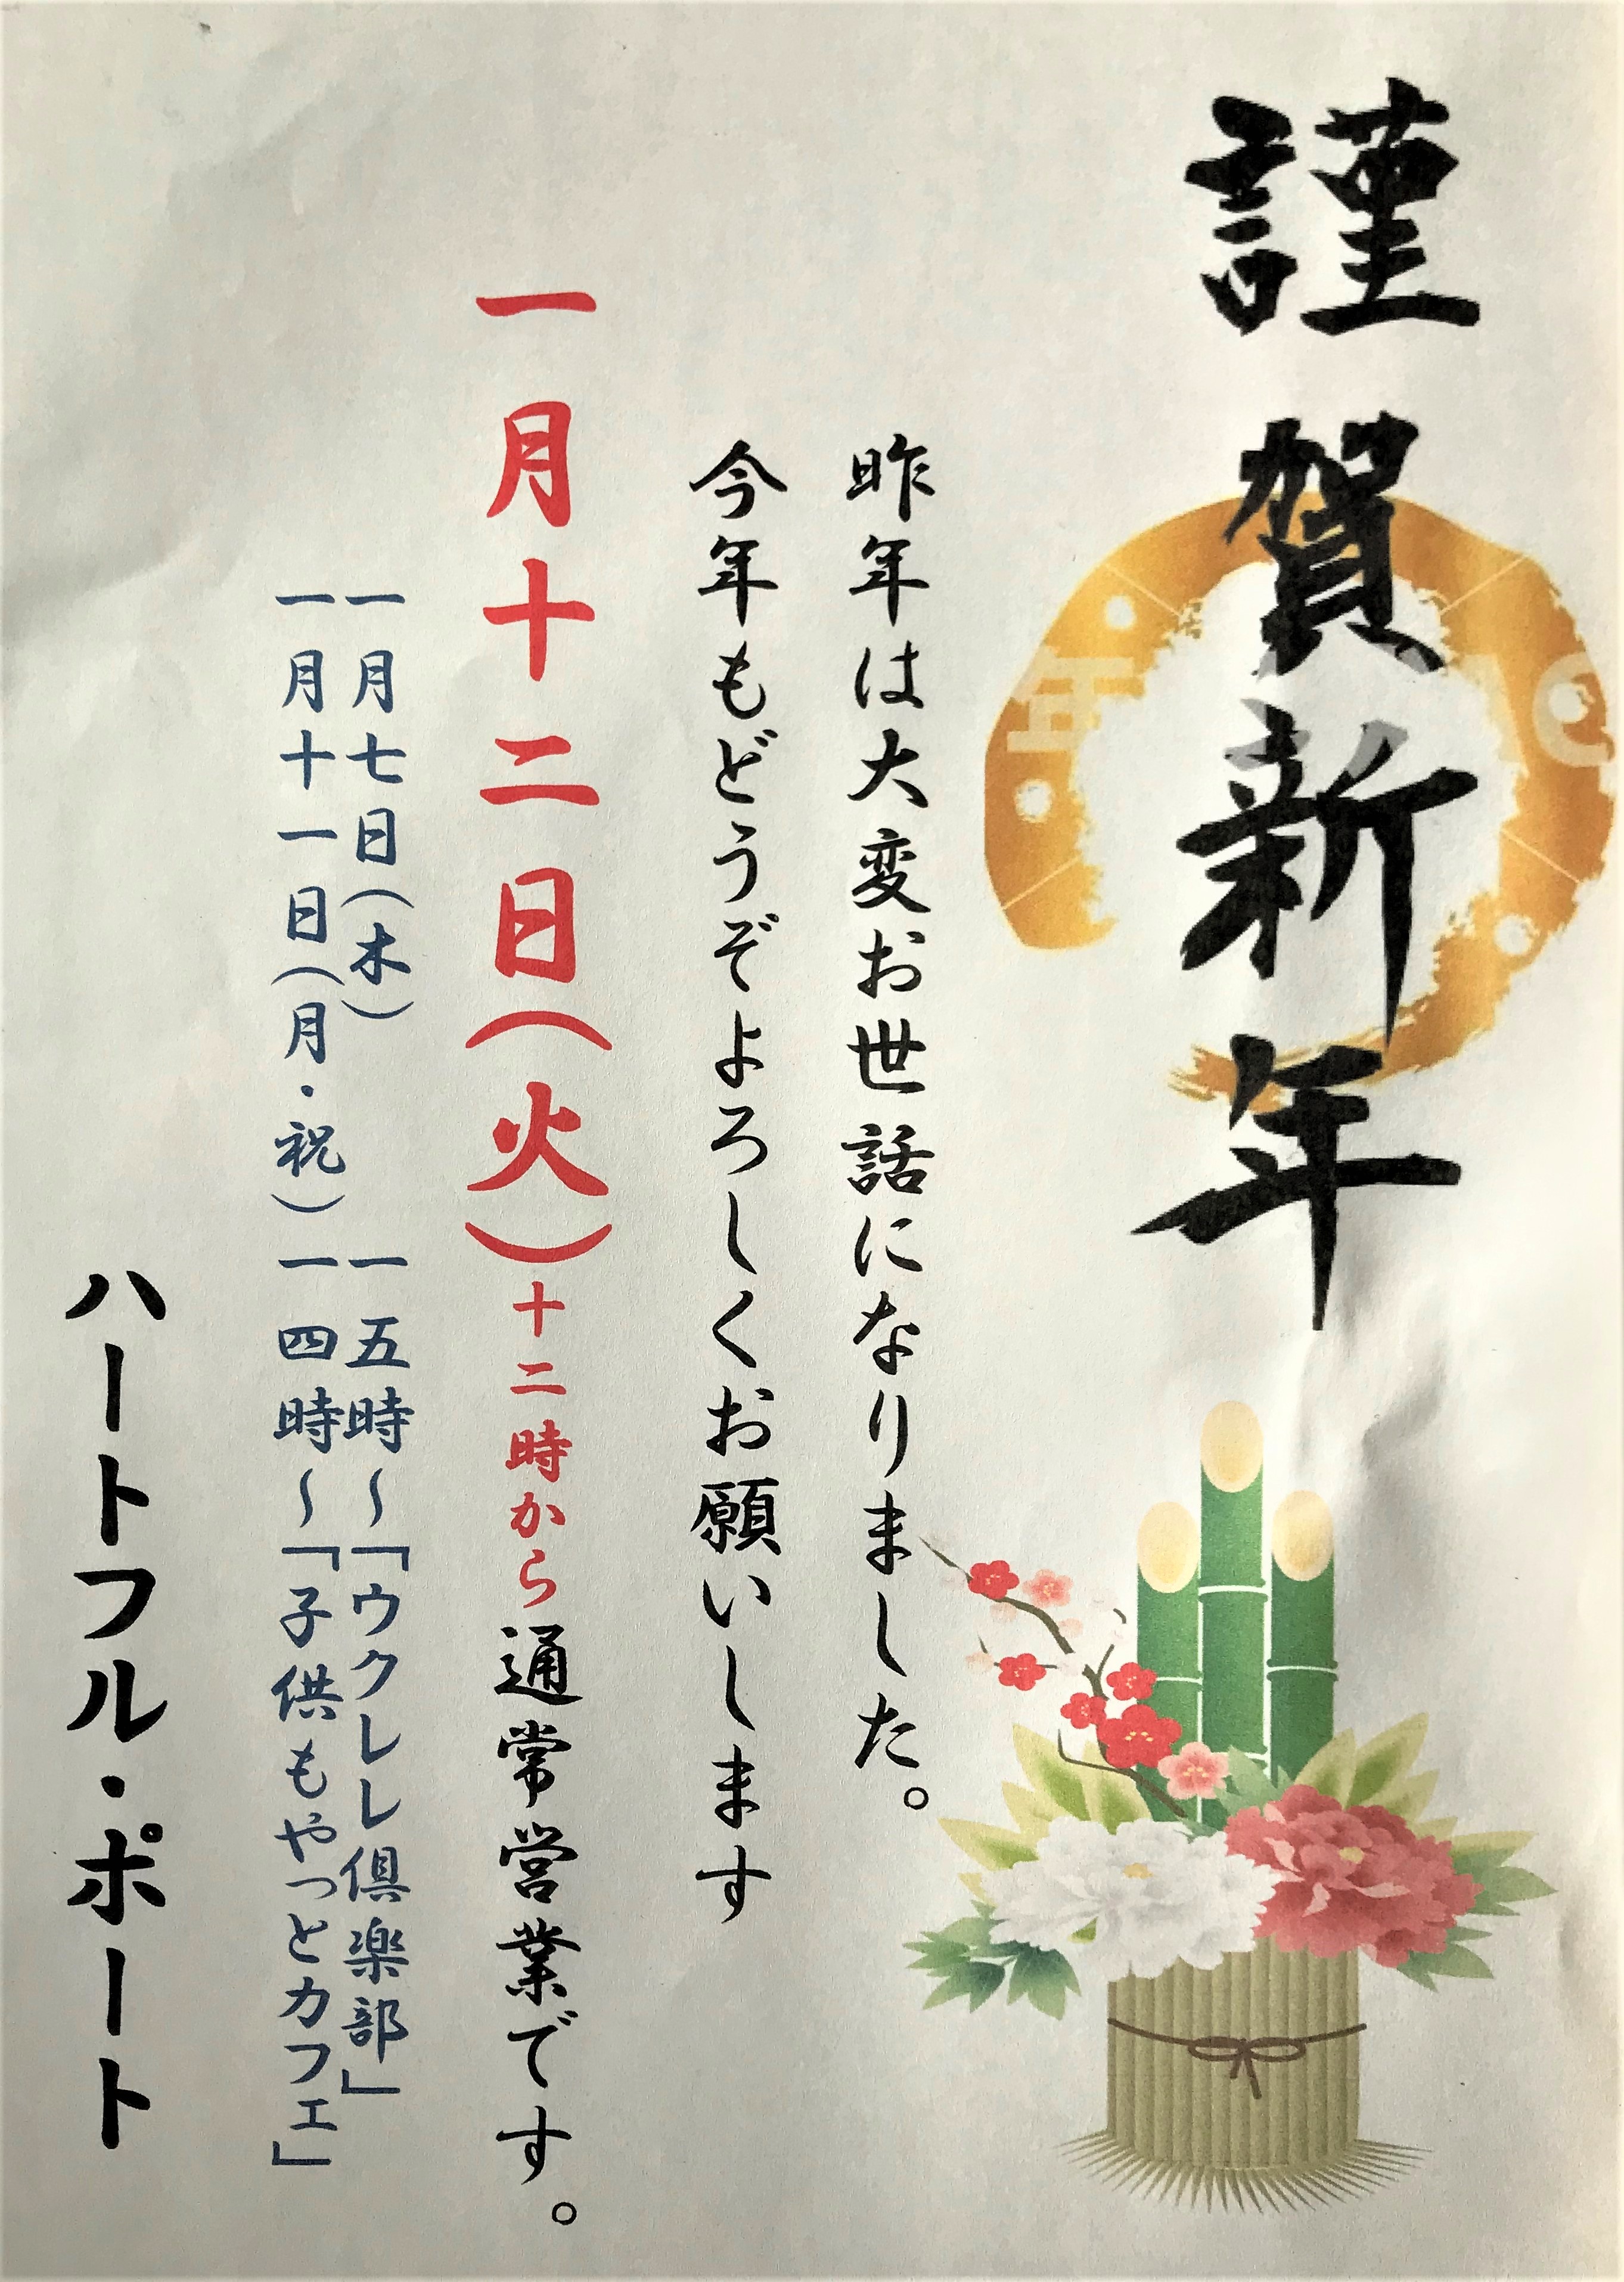 謹賀新年
昨年は大変お世話になりました。
今年もどうぞよろしくお願いします
一月十二日(火)十二時から通常営業です。
一月七日(木) 一五時~「ウクレレ倶楽部」
一月十一日(月・祝) 一四時~「子供もやっとカフェ」
ハートフル・ポート